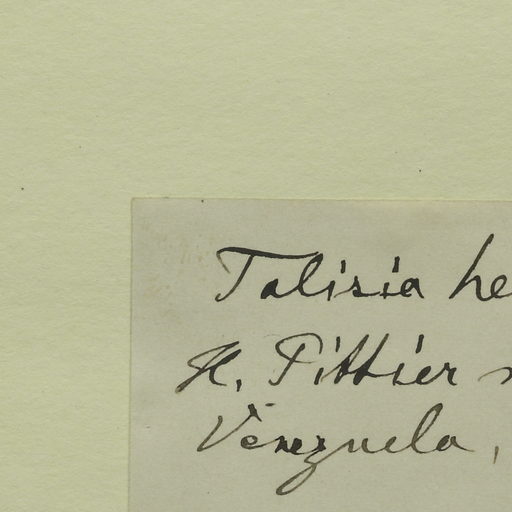 Talisia he
H. Pittier
Venezuela,